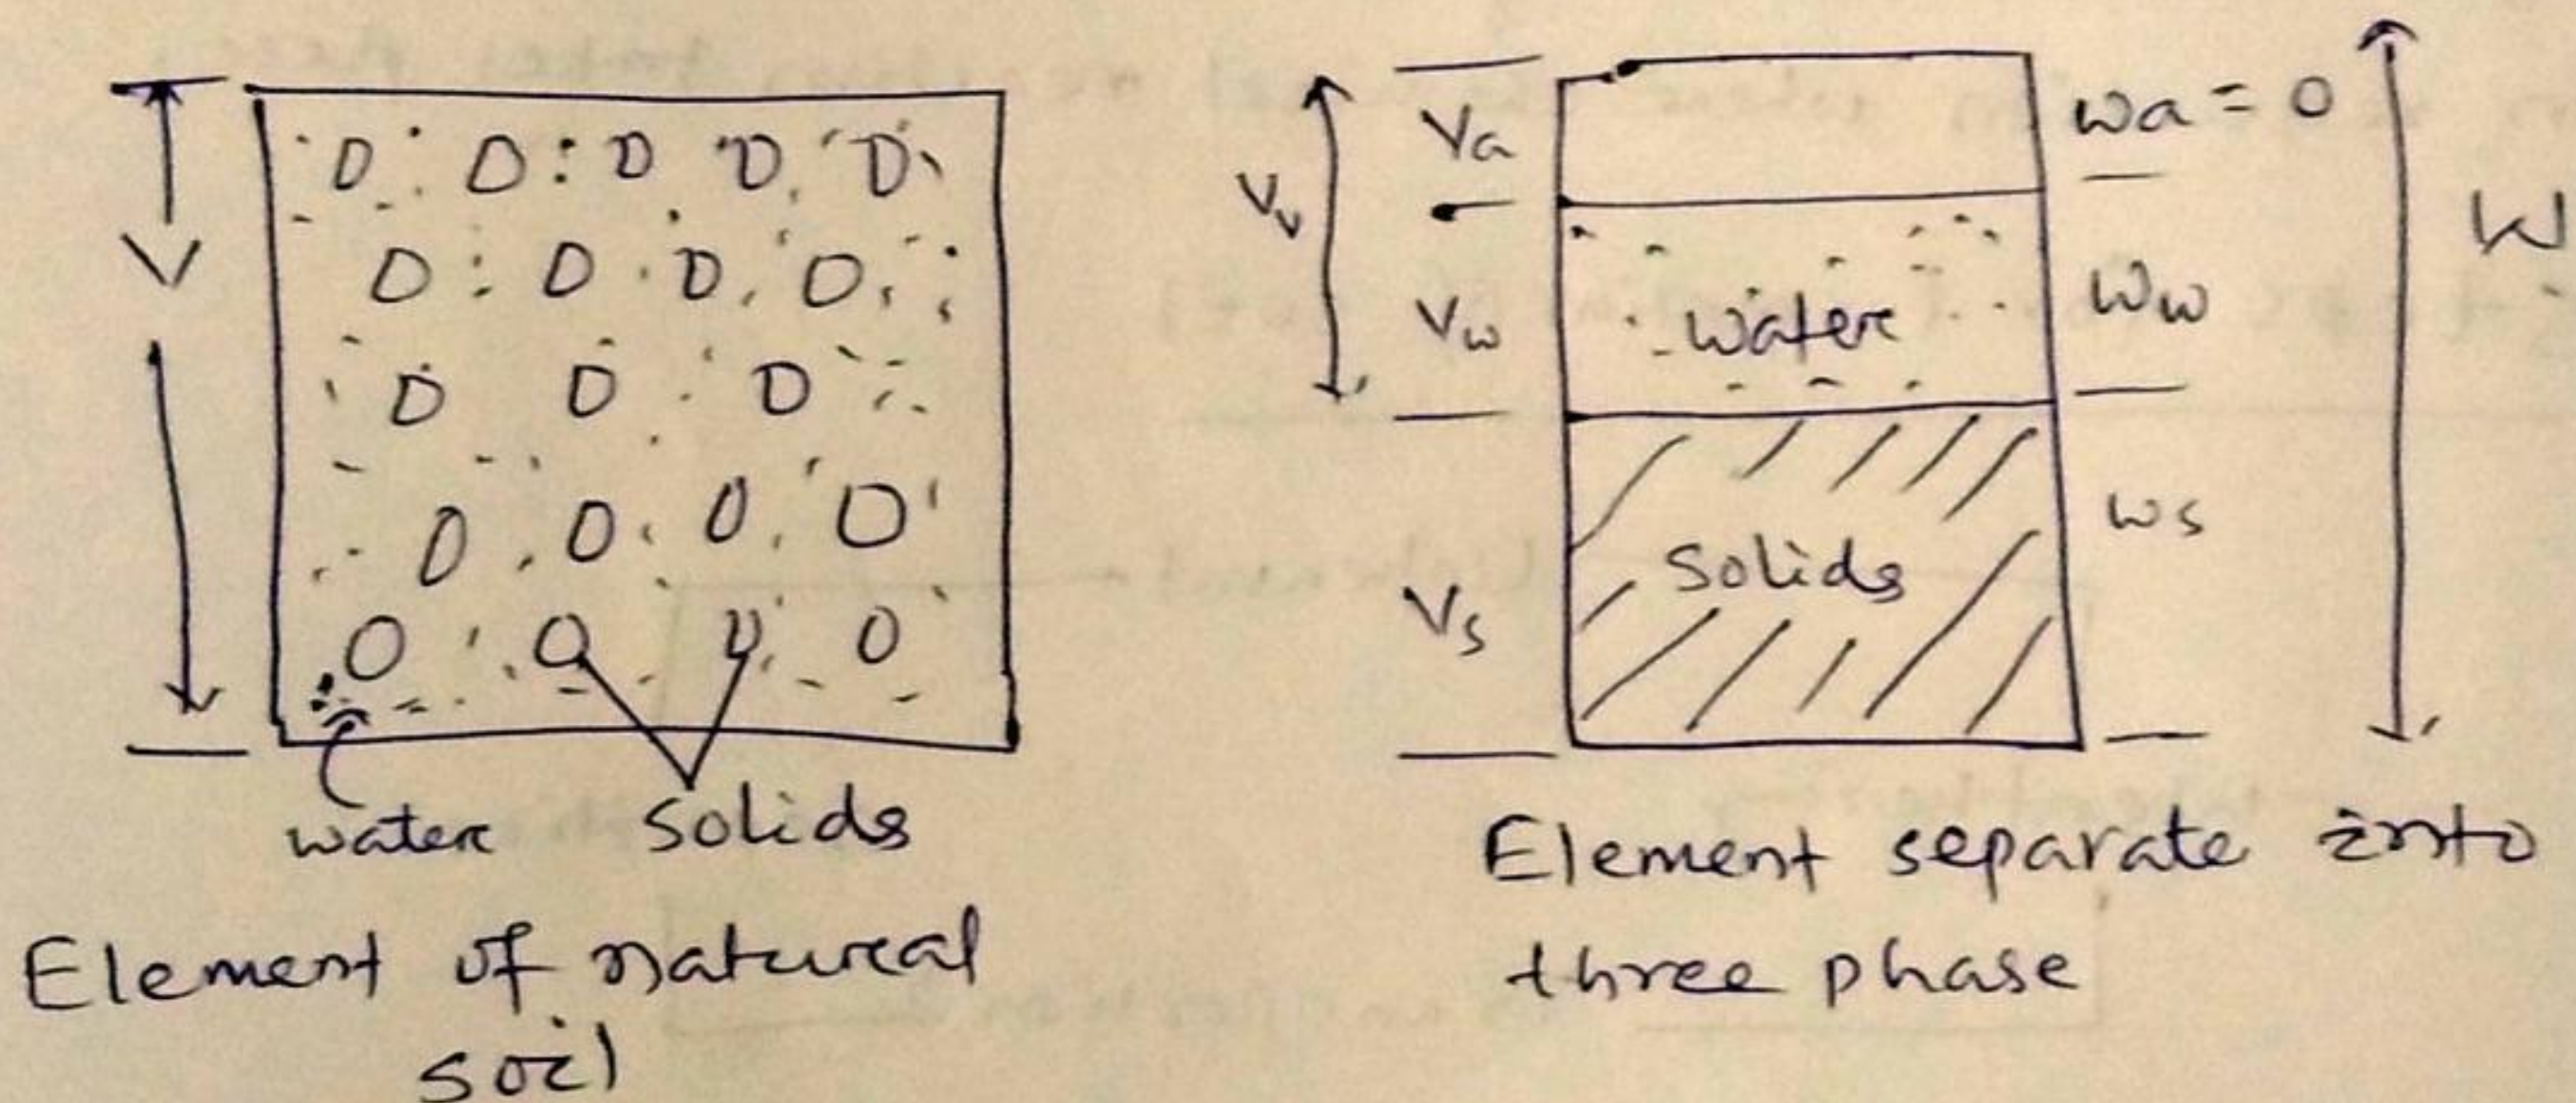 V
water solids
Element of natural
soil
Vv
Va
Vw
Vs
water
solids
wa = 0
Ww
ws
W
Element separate into
three phase